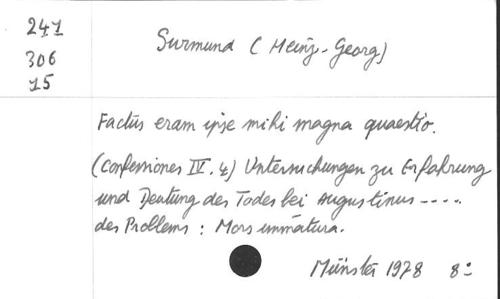 241
306
15
Surmund (Heinz-Georg)
Factus eram ipse mihi magna quaestio.
(Confessiones IV. 4) Untersuchungen zu Erfahrung
und Deutung des Todes bei Augustinus-----
des Problems : Mors immatura.
Münster 1978 8°